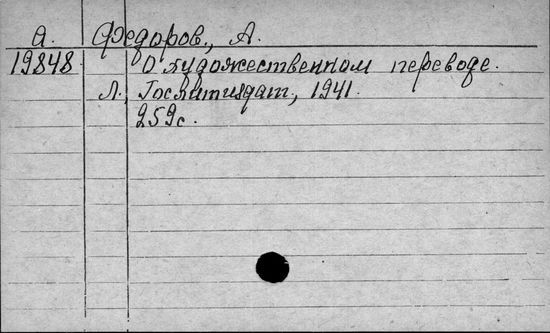 А. Федоров, А.
19848 О художественном переводе.
Л., Гослитиздат, 1941.
259с.